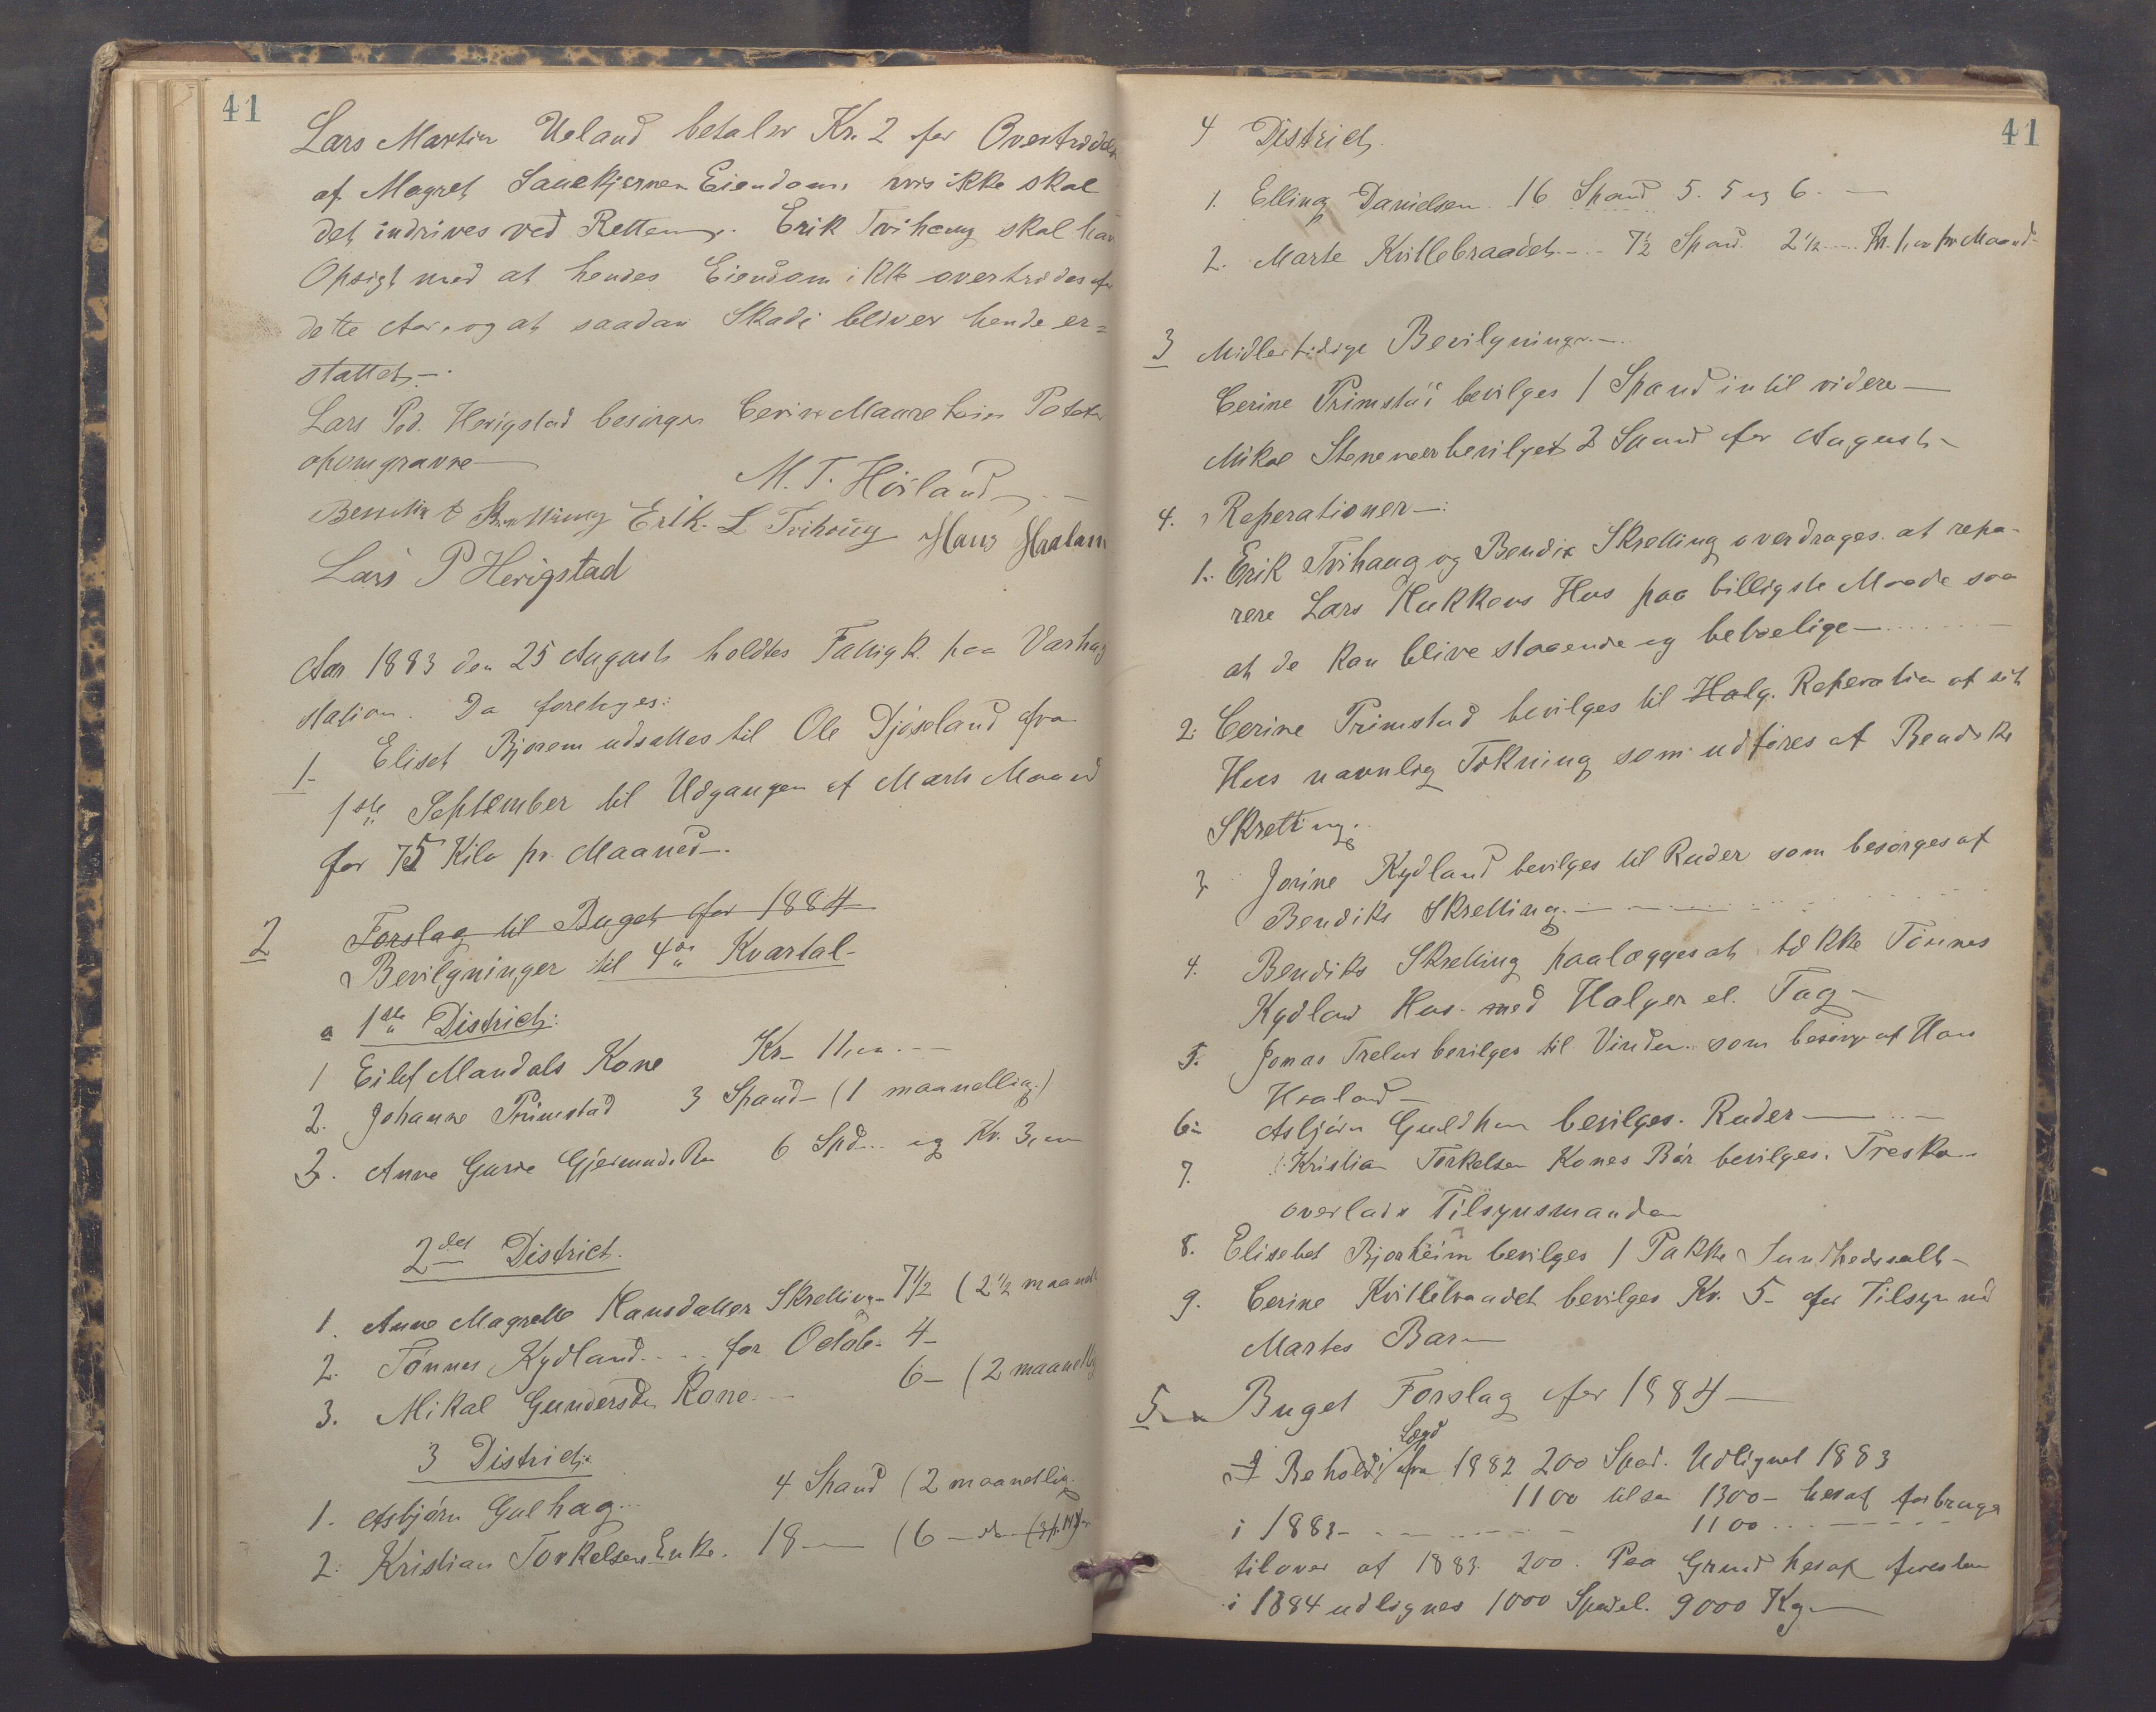 41
Lars Martin Ueland betaler Kr. 2 for Overtrædelse
af Magret Sauekjernen Eiendom, hvis ikke skal
det indrives ved Retten. Erik Tvihaug skal have
Opsigt med at hendes Eiendom ikke overtrædes efter
dette Aar, og at saadan Skade bliver hende er=
stattet.
Lars Pd. Herigstad besørger Cerine Poteter
opomgravne
M. T. Höiland
Bendix O Skretting Erik. L Tvihoüg Hans Haaland
Lars P Herigstad
Aar 1883 den 25 August holdtes Fattigk. paa Varhaug
station. Da foretoges:
1- Eliset Bjorem udsættes til Ole Djøseland fra
1ste September til Udgangen af Marts Maaned
for 75 Kilo pr. Maaned.
2 Forslag til Buget for 1884
Bevilgninger til 4de Kvartal-
a 1ste District:
1 Eilef Mandals Kone Kr- 11,00
2. Johanne Primstad 3 Spand- (1 maanedlig)
3. Anne Gurie 6 Spd... og Kr. 3,00
2det District.
1. Anne Magrette Hansdatter Skretting- 7 1/2 (2 1/2 maanedl
2. Tönnes Kydland.... for Octob. 4-
3. Mikal Gundersen Kone. 6- (2 maanedlig
3 District:
1. Asbjörn Gulhag... 4 Spand (2 maanedlig
2. Kristian Torkelsens Enke. 18 (6
41
4 District.
1. Elling Danielsen. 16 Spand 5. 5 og 6.
2. Marte Kvillebraadet... 7 1/2 Spand. 2 1/2 pr Maaned
3 Midlertidige Bevilgninger.
Cerine Primstad bevilges 1 Spand intil videre
Mikal bevilges 2 Spand for August
4. Reperationer:
1. Erik Tvihaug og Bendix Skretting overdrages at repa-
rere Lars Hukkens Hus paa billigste Maade saa
at de kan blive staaende og beboelige
2. Cerine Primstad bevilges til Halg. Reperation af sit
Hus navnlig Tækning som udføres af Bendiks
Skretting.
3 Jorine Kydland bevilges til Ruder som besørges af
Bendiks Skretting.
4. Bendiks Skretting paalægges at tække Tönnes
Kydland Hus. med Halger el. Tag
5. Jonas bevilges til Vinder som besørges af Hans
Haaland
6. Asbjörn Guldhau bevilges. Ruder
7. Kristian Torkelsen Kones Bör bevilges. Tresko
overlades Tilsynsmanden
8. Elisebet Bjorheim bevilges 1 Pakke Sundhedssalt
9. Cerine Kvillebraadet bevilges Kr. 5- for Tilsyn ved
Martes Barn
5 Buget Forslag for 1884
Behold. i Laad fra 1882 200 Spad. Udlignet 1883
1100 tilsa 1300- heraf forbruges
i 1883 1100
tilover af 1883. 200. Paa Grund heraf foreslaa
i 1884 udlignes 1000 Spad el. 9000 Kg